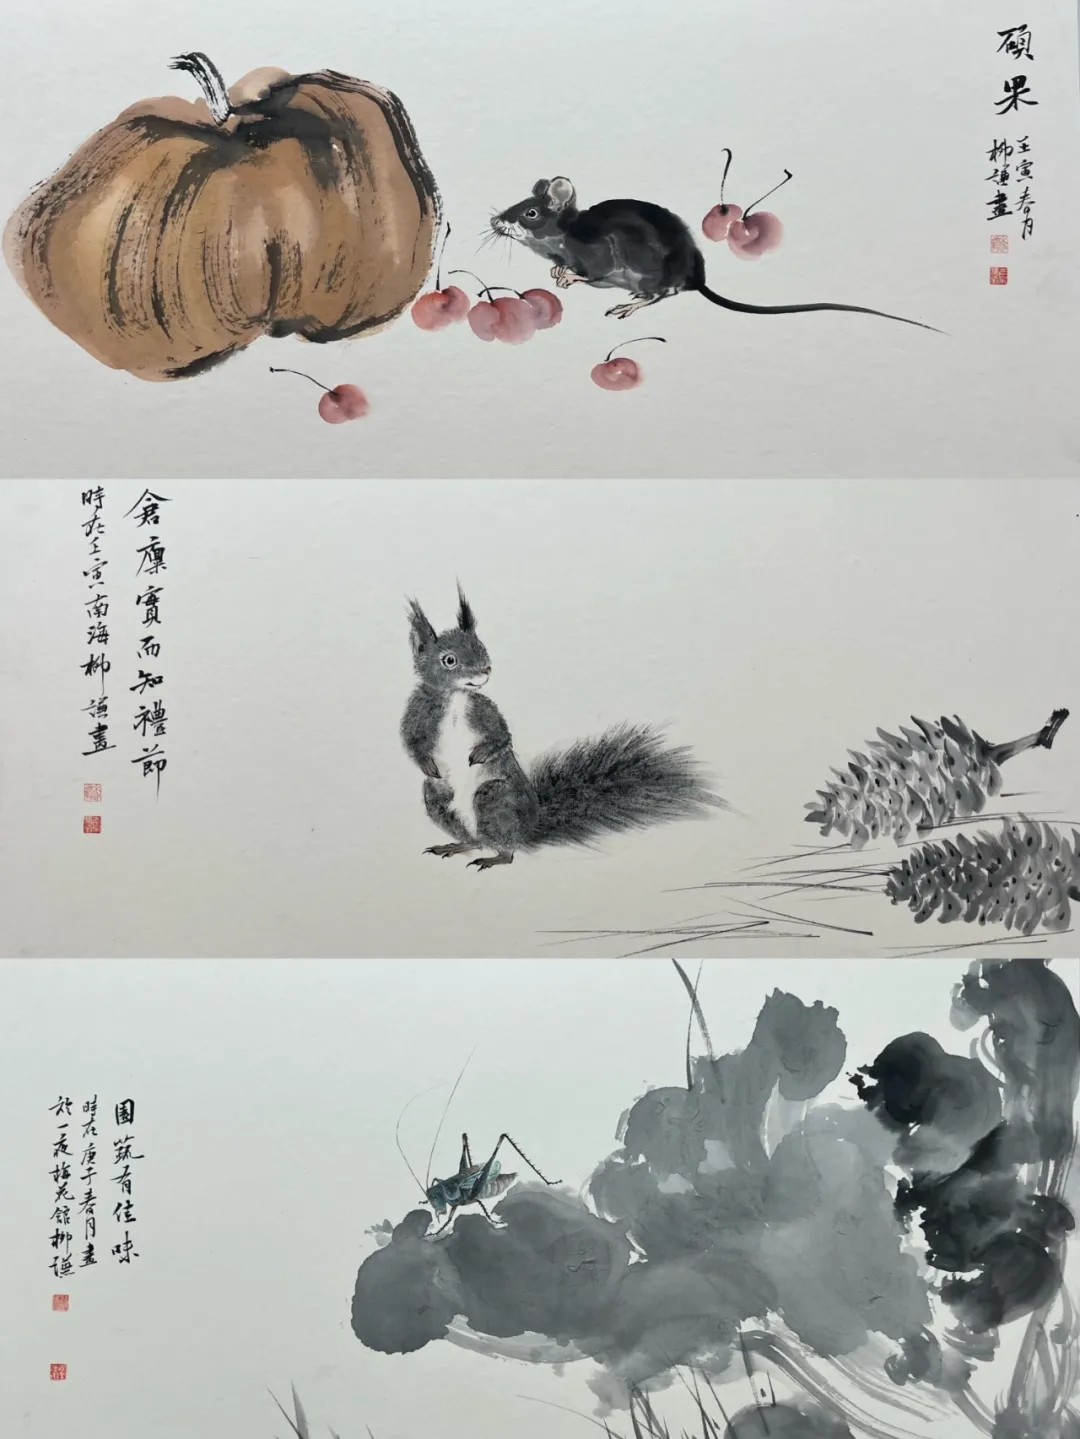 碩果
壬寅春月
柳謙畫
倉廩實而知禮節
時在壬寅南海柳謙畫
園蔬有佳味
時在庚子春月畫
於一夜梅花館柳謙